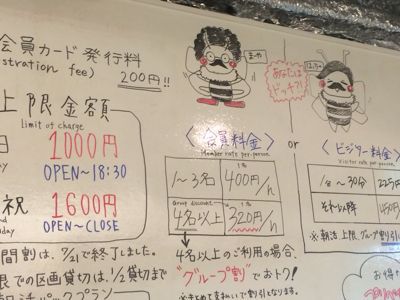 会員カード発行料
stration fee)
200円!!
上限金額
limit of charge
1000円
OPEN~18:30
祝
1600円
OPEN~CLOSE
間割は、9/21で終了しました。
での区画貸切は、1/2貸切まで
まーや
あなたは
ドッチ?!
<会員料金>
Member rate per-person.
1名
1~3名 400円/h
Group discount 1名
4名以上 320円/h
4名以上のご利用の場合、
"グループ割"でおトク!
or
<ビジター料金
Visitor rate per-person.
1台~30分 225円
それ以降 450円
※朝活 上限 グループ割引
お得な